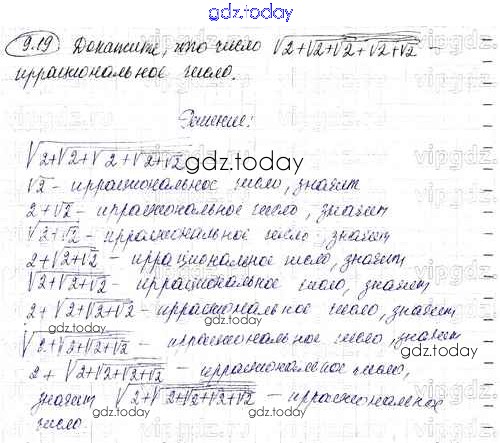 gdz.today
9.19 Докажите, что число √2+√2+√2+√2+√2 –
иррациональное число.
Решение:
√2+√2+√2+√2+√2
gdz.today
√2 – иррациональное число, значит
2+√2 – иррациональное число, значит
√2+√2 – иррациональное число, значит
2+√2+√2 – иррациональное число, значит
√2+√2+√2 – иррациональное число, значит
2+√2+√2+√2 – иррациональное число, значит
gdz.today
√2+√2+√2+√2 – иррациональное число, значит
2+√2+√2+√2+√2 – иррациональное число,
значит √2+√2+√2+√2+√2 – иррациональное
число
gdz.today
gdz.today
vipgdz
vipgdz
vipgdz